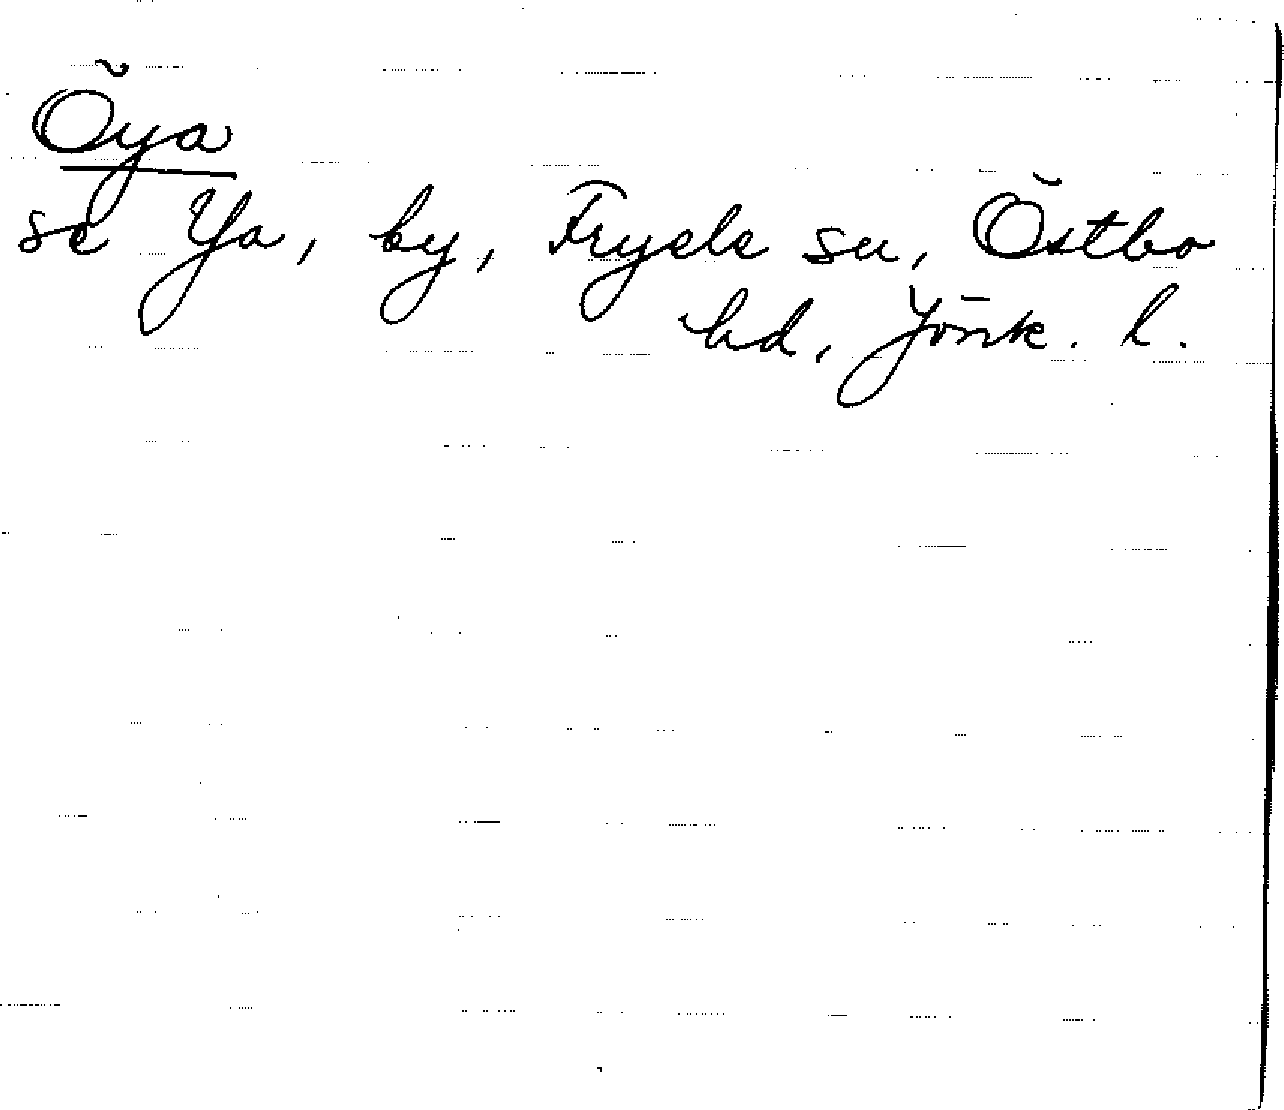 Öya
se Ya, by, Fryele sn, Östbo
hd, Jönk. l.